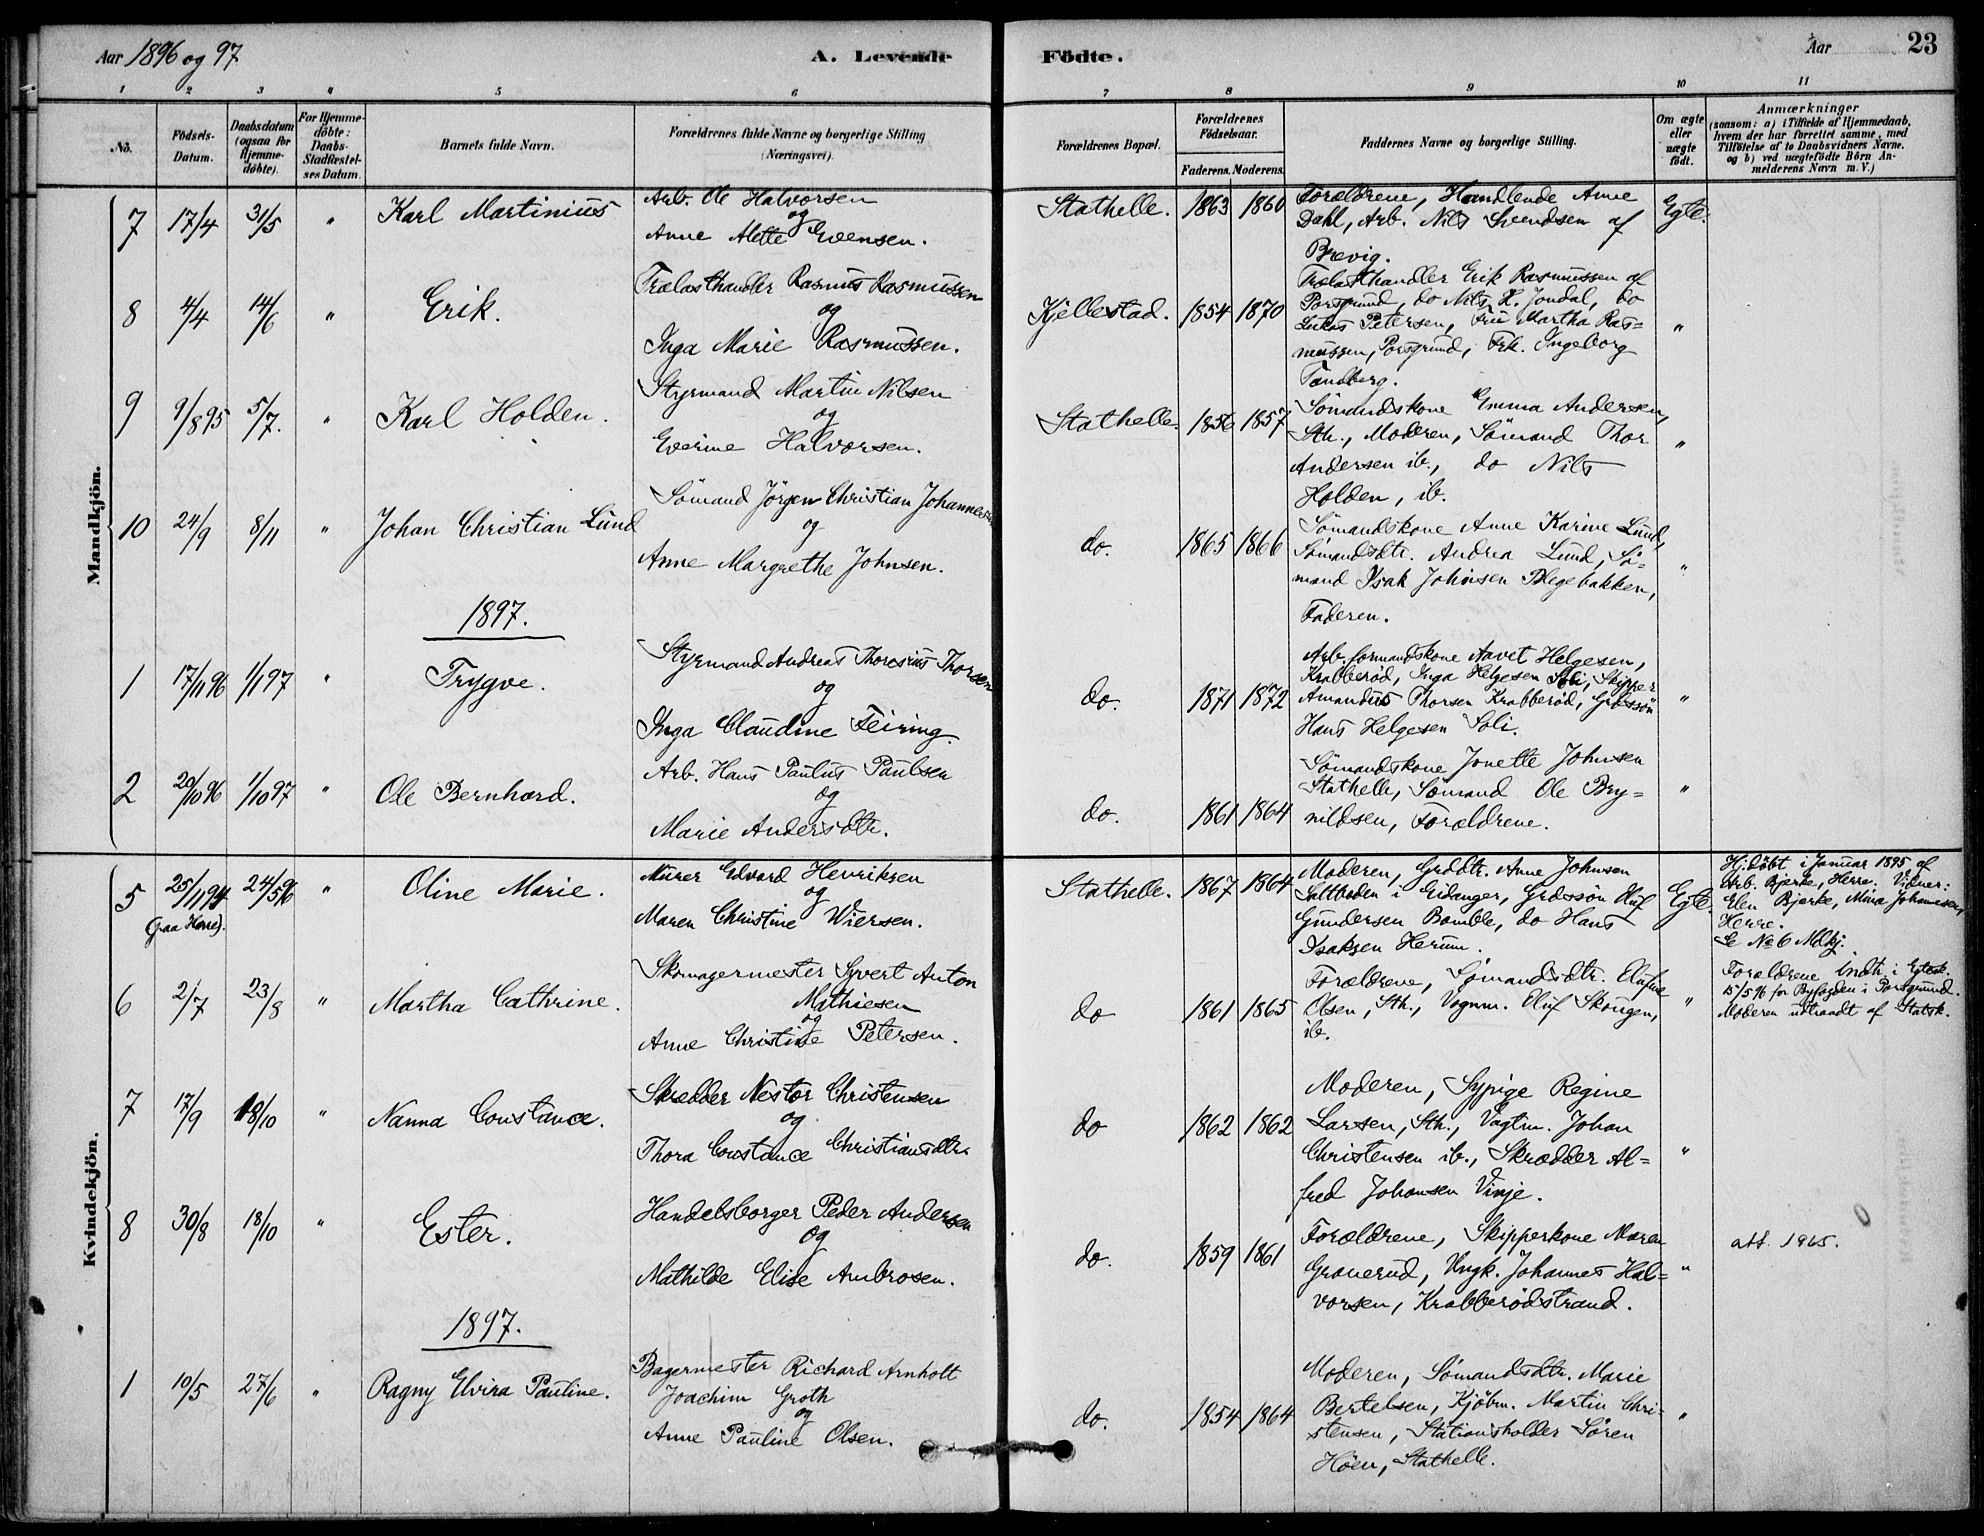 Aar 1896 og 97
A. Levende Födte.
Aar
23
1 2 3 4 5 6 7 8 9 10 11
No.
Födsels-Datum.
Daabsdatum (ogsaa for Hjemme-döbte).
For Hjemme-döbte: Daabs-Stadfæstel-ses Datum.
Barnets fulde Navn.
Forældrenes fulde Navne og borgerlige Stilling (Næringsvei).
Forældrenes Bopæl.
Forældrenes Födselsaar.
Faderens. Moderens.
Faddernes Navne og borgerlige Stilling.
Om ægte eller uægte födt.
Anmærkninger
(saasom: a) i Tilfælde af Hjemmedaab,
hvem der har forrettet samme, med
Tilföielse af to Daabsvidners Navne.
og b) ved uægtefödte Börn An-
melderens Navn m. V.)
Mandkjön.
7 17/4 31/5 " Karl Martinius
Arb. Ole Halvorsen
og
Anne Alette Evensen.
Stathelle. 1863 1860
Forældrene, Handlende Anne
Dahl, Arb. Nils Svendsen af
Brevig.
Egte.
8 4/4 14/6 " Erik.
Trælasthandler Rasmus Rasmussen
og
Inga Marie Rasmussen.
Kjellestad. 1854 1870
Trælasthandler Erik Rasmussen af
Porsgrund, do Nils H. Jondal, do
Lukas Petersen, Fru Martha Ras=
mussen, Porsgrund, Frk. Ingeborg
Tandberg.
"
9 9/8 95 5/7. " Karl Holden.
Styrmand Martin Nilsen
og
Everine Halvorsen.
Stathelle. 1856 1857
Sömandskone Emma Andersen,
Sth., Moderen, Sömand Thor
Andersen ib., do Nils
Holden, ib.
"
10 24/9 8/11 " Johan Christian Lund
Sömand Jörgen Christian Johannesen
og
Anne Margrethe Johnsen.
do. 1865 1866
Sömandskone Anne Karine Lund,
Sömandsdtr. Andrea Lund, Sö-
mand Isak Johnsen Blegebakken,
Faderen.
"
1897.
1 17/11 96 1/1 97 " Trygve.
Styrmand Andreas Thoresius Thorsen
og
Inga Claudine Feiring.
do. 1871 1872
Arb.formandskone Aavet Helgesen,
Krabberød, Inga Helgesen Soli, Skipper
Amandus Thorsen Krabberød, Grdssön
Hans Helgesen Soli.
"
2 20/10 96 1/10 97 " Ole Bernhard.
Arb. Hans Paulus Paulsen
og
Marie Andersdtr.
do. 1861 1864
Sömandskone Jonette Johnsen
Stathelle, Sömand Ole Bry=
nildsen, Forældrene.
"
Kvindekjön.
5 25/11 94 24/5 96 " Oline Marie.
(paa Herre).
Murer Edvard Henriksen
og
Maren Christine Wiersen.
Stathelle. 1867 1864
Moderen, Grddtr. Anne Johnsen
Saltboden i Eidanger, Grdssön Oluf
Gundersen Bamble, do Hans
Isaksen Herum.
Egte.
Hj.döbt i Januar 1895 af
Arb. Bjerke, Herre. Vidner:
Elen Bjerke, Mina Johannesen,
Herre.
Se No 6 Mdkj.
6 2/7 23/8 " Martha Cathrine.
Skomagermester Syvert Anton
Mathiesen
og
Anne Christine Petersen.
do 1861 1865
Forældrene, Sömandsdtr. Elufine
Olsen, Sth., Vognm. Eluf Skougen,
ib.
"
Forældrene indtr. i Egtesk.
15/5 96 for Byfogden i Porsgrund.
Moderen udtraadt af Statsk.
7 17/9 18/10 " Nanna Constance.
Skrædder Nestor Christensen
og
Thora Constance Christiansdtr.
do 1862 1862
Moderen, Sypige Regine
Larsen, Sth., Vagtm. Johan
Christensen ib., Skrædder Al=
fred Johansen Vinje.
"
8 30/8 18/10 " Ester.
Handelsborger Peder Andersen
og
Mathilde Elise Ambrosen.
do. 1859 1861
Forældrene, Skipperkone Maren
Graverud, Ungk. Johannes Hal=
vorsen, Krabberødstrand.
"
att. 1965.
1897.
1 10/5 27/6 " Ragny Elvira Pauline.
Bagermester Richard Arnholt
Joachim Groth
og
Anne Pauline Olsen.
do. 1854 1864
Moderen, Sömandsdtr. Marie
Bertelsen, Kjöbm. Martin Chri=
stensen, Stationsholder Sören
Höen, Stathelle.
"